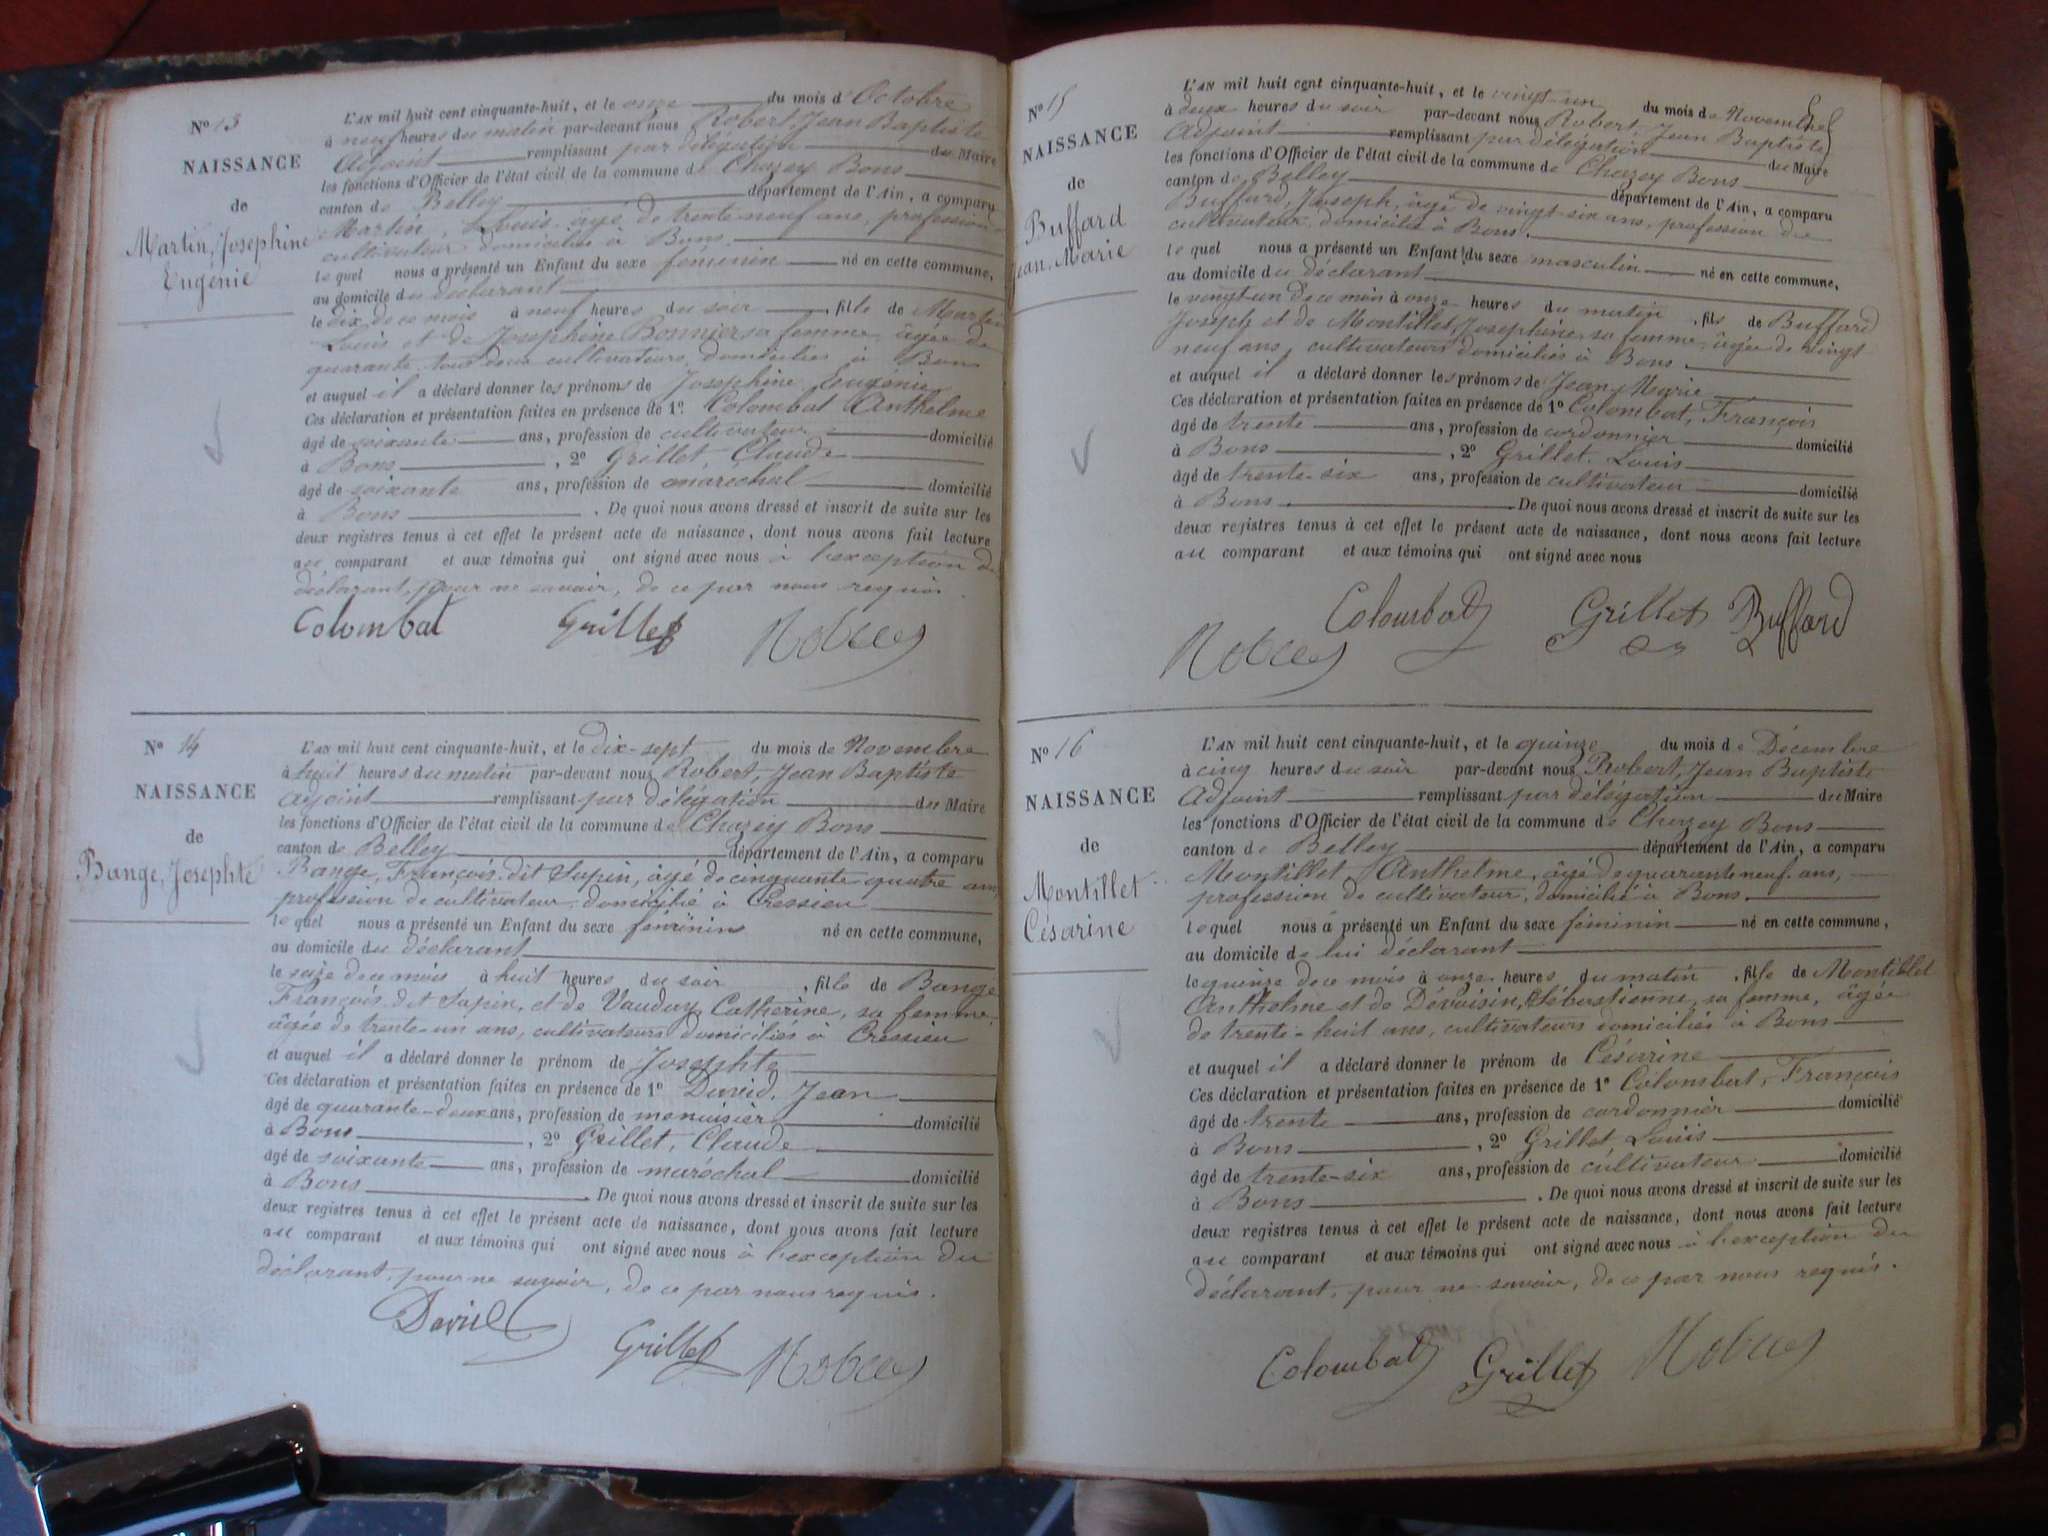 N° 13
NAISSANCE
de
Martin, Josephine
Eugénie
L'AN mil huit cent cinquante-huit, et le onze du mois d'Octobre
à neuf heures du matin par-devant nous Robert, Jean Baptiste
Adjoint remplissant par délégation du Maire
les fonctions d'Officier de l'état civil de la commune de Chazey Bons
canton de Belley département de l'Ain, a comparu
Martin, Louis, âgé de trente-neuf ans, profession
cultivateur domicilié à Bons
lequel nous a présenté un Enfant du sexe feminin né en cette commune,
au domicile du déclarant
le dix de ce mois à neuf heures du soir, fille de Martin
Louis et de Josephine Bonnier sa femme, âgée de
quarante, tous deux cultivateurs, domiciliés à Bons
et auquel il a déclaré donner les prénoms de Josephine Eugénie
Ces déclaration et présentation faites en présence de 1° Colombat Anthelme
âgé de soixante ans, profession de cultivateur domicilié
à Bons, 2° Grillet, Claude
âgé de soixante ans, profession de maréchal domicilié
à Bons. De quoi nous avons dressé et inscrit de suite sur les
deux registres tenus à cet effet le présent acte de naissance, dont nous avons fait lecture
au comparant et aux témoins qui ont signé avec nous à l'exception du
déclarant, pour ne savoir, de ce par nous requis.
Colombat Grillet Robert
N° 14
NAISSANCE
de
Bange, Josephte
L'AN mil huit cent cinquante-huit, et le dix-sept du mois de Novembre
à huit heures du matin par-devant nous Robert, Jean Baptiste
Adjoint remplissant par délégation du Maire
les fonctions d'Officier de l'état civil de la commune de Chazey Bons
canton de Belley département de l'Ain, a comparu
Bange, François dit Sapin, âgé de cinquante quatre ans,
profession de cultivateur, domicilié à Cressieu
lequel nous a présenté un Enfant du sexe féminin né en cette commune,
au domicile du déclarant
le seize de ce mois à huit heures du soir, fille de Bange
François dit Sapin, et de Vaudury Catherine, sa femme
âgée de trente-un ans, cultivateurs domiciliés à Cressieu
et auquel il a déclaré donner le prénom de Josephte
Ces déclaration et présentation faites en présence de 1° David, Jean
âgé de quarante-deux ans, profession de menuisier domicilié
à Bons, 2° Grillet, Claude
âgé de soixante ans, profession de maréchal domicilié
à Bons. De quoi nous avons dressé et inscrit de suite sur les
deux registres tenus à cet effet le présent acte de naissance, dont nous avons fait lecture
au comparant et aux témoins qui ont signé avec nous à l'exception du
déclarant, pour ne savoir, de ce par nous requis.
David Grillet Robert
N° 15
NAISSANCE
de
Buffard
Jean, Marie
L'AN mil huit cent cinquante-huit, et le vingt-un du mois de Novembre
à deux heures du soir par-devant nous Robert, Jean Baptiste
Adjoint remplissant par délégation du Maire
les fonctions d'Officier de l'état civil de la commune de Chazey Bons
canton de Belley département de l'Ain, a comparu
Buffard, Joseph, âgé de vingt-six ans, profession de
cultivateur domicilié à Bons.
lequel nous a présenté un Enfant du sexe masculin né en cette commune,
au domicile du déclarant
le vingt-un de ce mois à onze heures du matin, fils de Buffard
Joseph et de Montillet, Josephine, sa femme, âgée de vingt
neuf ans, cultivateurs domiciliés à Bons.
et auquel il a déclaré donner les prénoms de Jean, Marie
Ces déclaration et présentation faites en présence de 1° Colombat, François
âgé de trente ans, profession de cordonnier domicilié
à Bons, 2° Grillet, Louis
âgé de trente-six ans, profession de cultivateur domicilié
à Bons. De quoi nous avons dressé et inscrit de suite sur les
deux registres tenus à cet effet le présent acte de naissance, dont nous avons fait lecture
au comparant et aux témoins qui ont signé avec nous
Colombat Grillet Buffard
Robert
N° 16
NAISSANCE
de
Montillet
Césarine
L'AN mil huit cent cinquante-huit, et le quinze du mois de Décembre
à cinq heures du soir par-devant nous Robert, Jean Baptiste
Adjoint remplissant par délégation du Maire
les fonctions d'Officier de l'état civil de la commune de Chazey Bons
canton de Belley département de l'Ain, a comparu
Montillet Anthelme, âgé de quarante neuf ans,
profession de cultivateur, domicilié à Bons.
lequel nous a présenté un Enfant du sexe féminin né en cette commune,
au domicile de lui déclarant
le quinze de ce mois à onze heures du matin, fille de Montillet
Anthelme et de Dévoisin, Sébastienne, sa femme, âgée
de trente-huit ans, cultivateurs domiciliés à Bons
et auquel il a déclaré donner le prénom de Césarine
Ces déclaration et présentation faites en présence de 1° Colombat, François
âgé de trente ans, profession de cordonnier domicilié
à Bons, 2° Grillet Louis
âgé de trente-six ans, profession de cultivateur domicilié
à Bons. De quoi nous avons dressé et inscrit de suite sur les
deux registres tenus à cet effet le présent acte de naissance, dont nous avons fait lecture
au comparant et aux témoins qui ont signé avec nous à l'exception du
déclarant, pour ne savoir, de ce par nous requis.
Colombat Grillet Robert